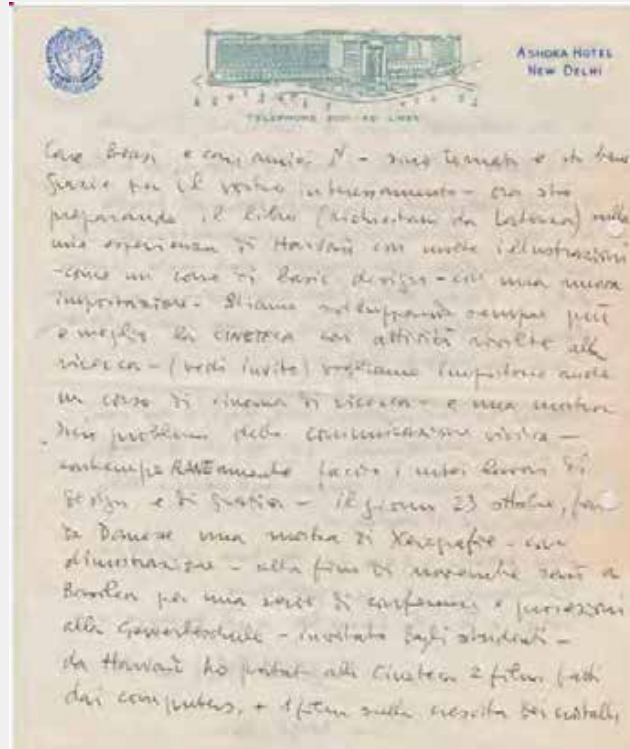 ASHOKA HOTEL
NEW DELHI
TELEPHONE LINES
e cari amici N - sono tornato e sto bene
grazie per il vostro interessamento - ora sto
preparando il libro (richiestomi da Laterza) sulla
mia esperienza di Harvard con molte illustrazioni
- come un corso di basic design - con una nuova
impostazione - Stiamo sviluppando sempre più
e meglio la CINETECA con attività rivolte alla
ricerca - (vedi invito) vogliamo impostare anche
un corso di cinema di ricerca - e una mostra
sui problemi della comunicazione visiva -
contempoRANEamente faccio i miei lavori di
design e di grafica - il giorno 23 ottobre, farò
da Danese una mostra di Xerografie - con
dimostrazione - alla fine di novembre sarò a
Basilea per una serie di conferenze e proiezioni
alla Gewerbeschule - invitato dagli studenti -
da Harvard ho portato alla Cineteca 2 film fatti
dai computers, + 1 film sulla crescita dei cristalli,